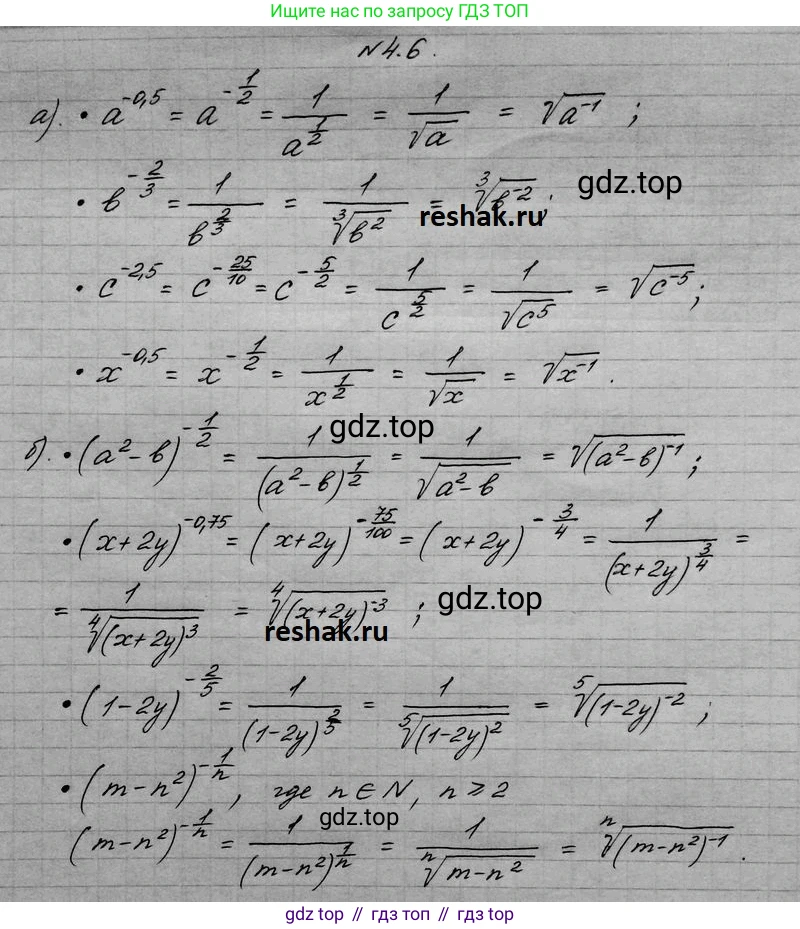 Ищите нас по запросу ГДЗ ТОП
№4.6.
а). • a^{-0,5} = a^{-\frac{1}{2}} = \frac{1}{a^{\frac{1}{2}}} = \frac{1}{\sqrt{a}} = \sqrt{a^{-1}} ;
• b^{-\frac{2}{3}} = \frac{1}{b^{\frac{2}{3}}} = \frac{1}{\sqrt[3]{b^2}} = \sqrt[3]{b^{-2}} ; gdz.top
reshak.ru
• c^{-2,5} = c^{-\frac{25}{10}} = c^{-\frac{5}{2}} = \frac{1}{c^{\frac{5}{2}}} = \frac{1}{\sqrt{c^5}} = \sqrt{c^{-5}} ;
• x^{-0,5} = x^{-\frac{1}{2}} = \frac{1}{x^{\frac{1}{2}}} = \frac{1}{\sqrt{x}} = \sqrt{x^{-1}} .
gdz.top
б). • (a^2-b)^{-\frac{1}{2}} = \frac{1}{(a^2-b)^{\frac{1}{2}}} = \frac{1}{\sqrt{a^2-b}} = \sqrt{(a^2-b)^{-1}} ;
• (x+2y)^{-0,75} = (x+2y)^{-\frac{75}{100}} = (x+2y)^{-\frac{3}{4}} = \frac{1}{(x+2y)^{\frac{3}{4}}} =
= \frac{1}{\sqrt[4]{(x+2y)^3}} = \sqrt[4]{(x+2y)^{-3}} ; gdz.top
reshak.ru
• (1-2y)^{-\frac{2}{5}} = \frac{1}{(1-2y)^{\frac{2}{5}}} = \frac{1}{\sqrt[5]{(1-2y)^2}} = \sqrt[5]{(1-2y)^{-2}} ;
• (m-n^2)^{-\frac{1}{n}}, где n ∈ N, n ⩾ 2
gdz.top
(m-n^2)^{-\frac{1}{n}} = \frac{1}{(m-n^2)^{\frac{1}{n}}} = \frac{1}{\sqrt[n]{m-n^2}} = \sqrt[n]{(m-n^2)^{-1}} .
gdz top // гдз топ // gdz.top